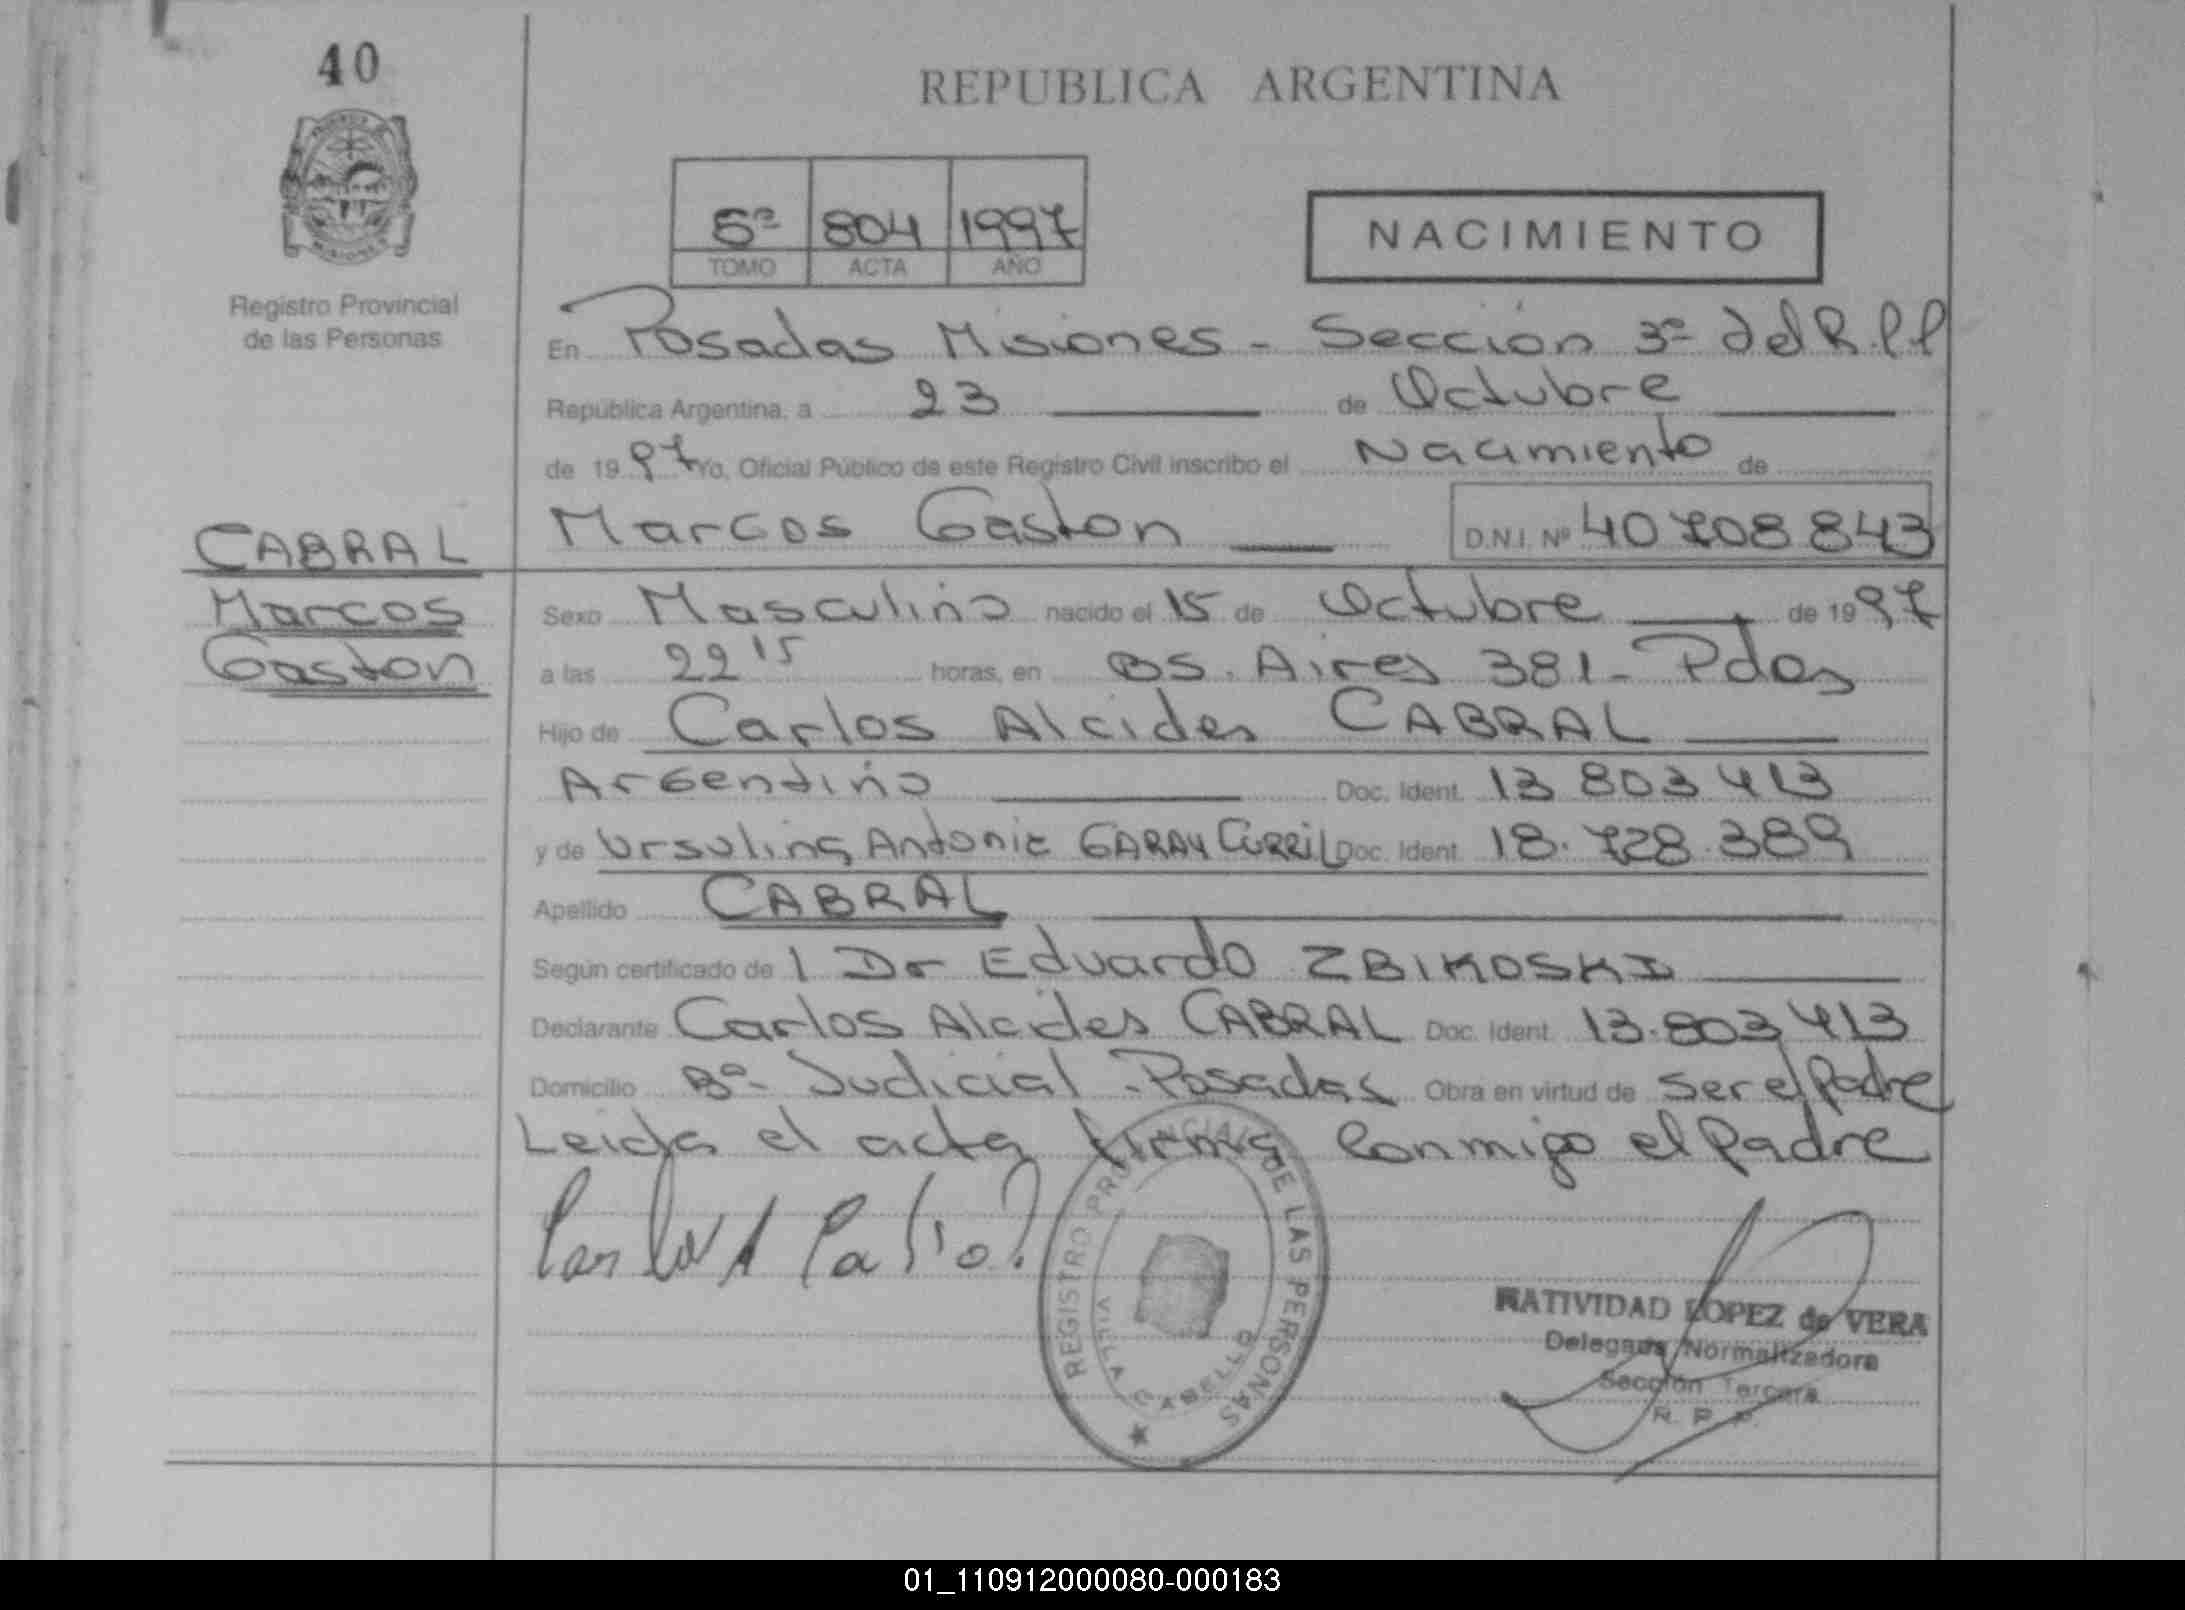 40
REPUBLICA ARGENTINA
5º 804 1997
TOMO ACTA AÑO
NACIMIENTO
Registro Provincial
de las Personas
En Posadas Misiones - Sección 3º del R.P.P
República Argentina, a 23 de Octubre
de 1997 Yo, Oficial Público de este Registro Civil inscribo el Nacimiento de
Marcos Gaston D.N.I. Nº 40708843
CABRAL
Marcos
Gaston
Sexo Masculino nacido el 15 de Octubre de 1997
a las 22 15 horas, en BS. Aires 381 - Pdas
Hijo de Carlos Alcides CABRAL
Argentino Doc. Ident. 13 803 413
y de Ursulina Antonia GARAY Doc. Ident. 18.728.389
Apellido CABRAL
Según certificado de l Dr Eduardo ZBIKOSKI
Declarante Carlos Alcides CABRAL Doc. Ident. 13.803 413
Domicilio Bº- Judicial - Posadas Obra en virtud de ser el Padre
Leida el acta firma conmigo el Padre
REGISTRO PROVINCIAL DE LAS PERSONAS
VILLA CABELLO
NATIVIDAD LOPEZ de VERA
Delegada Normalizadora
Sección Tercera
R. P. P.
01_110912000080-000183